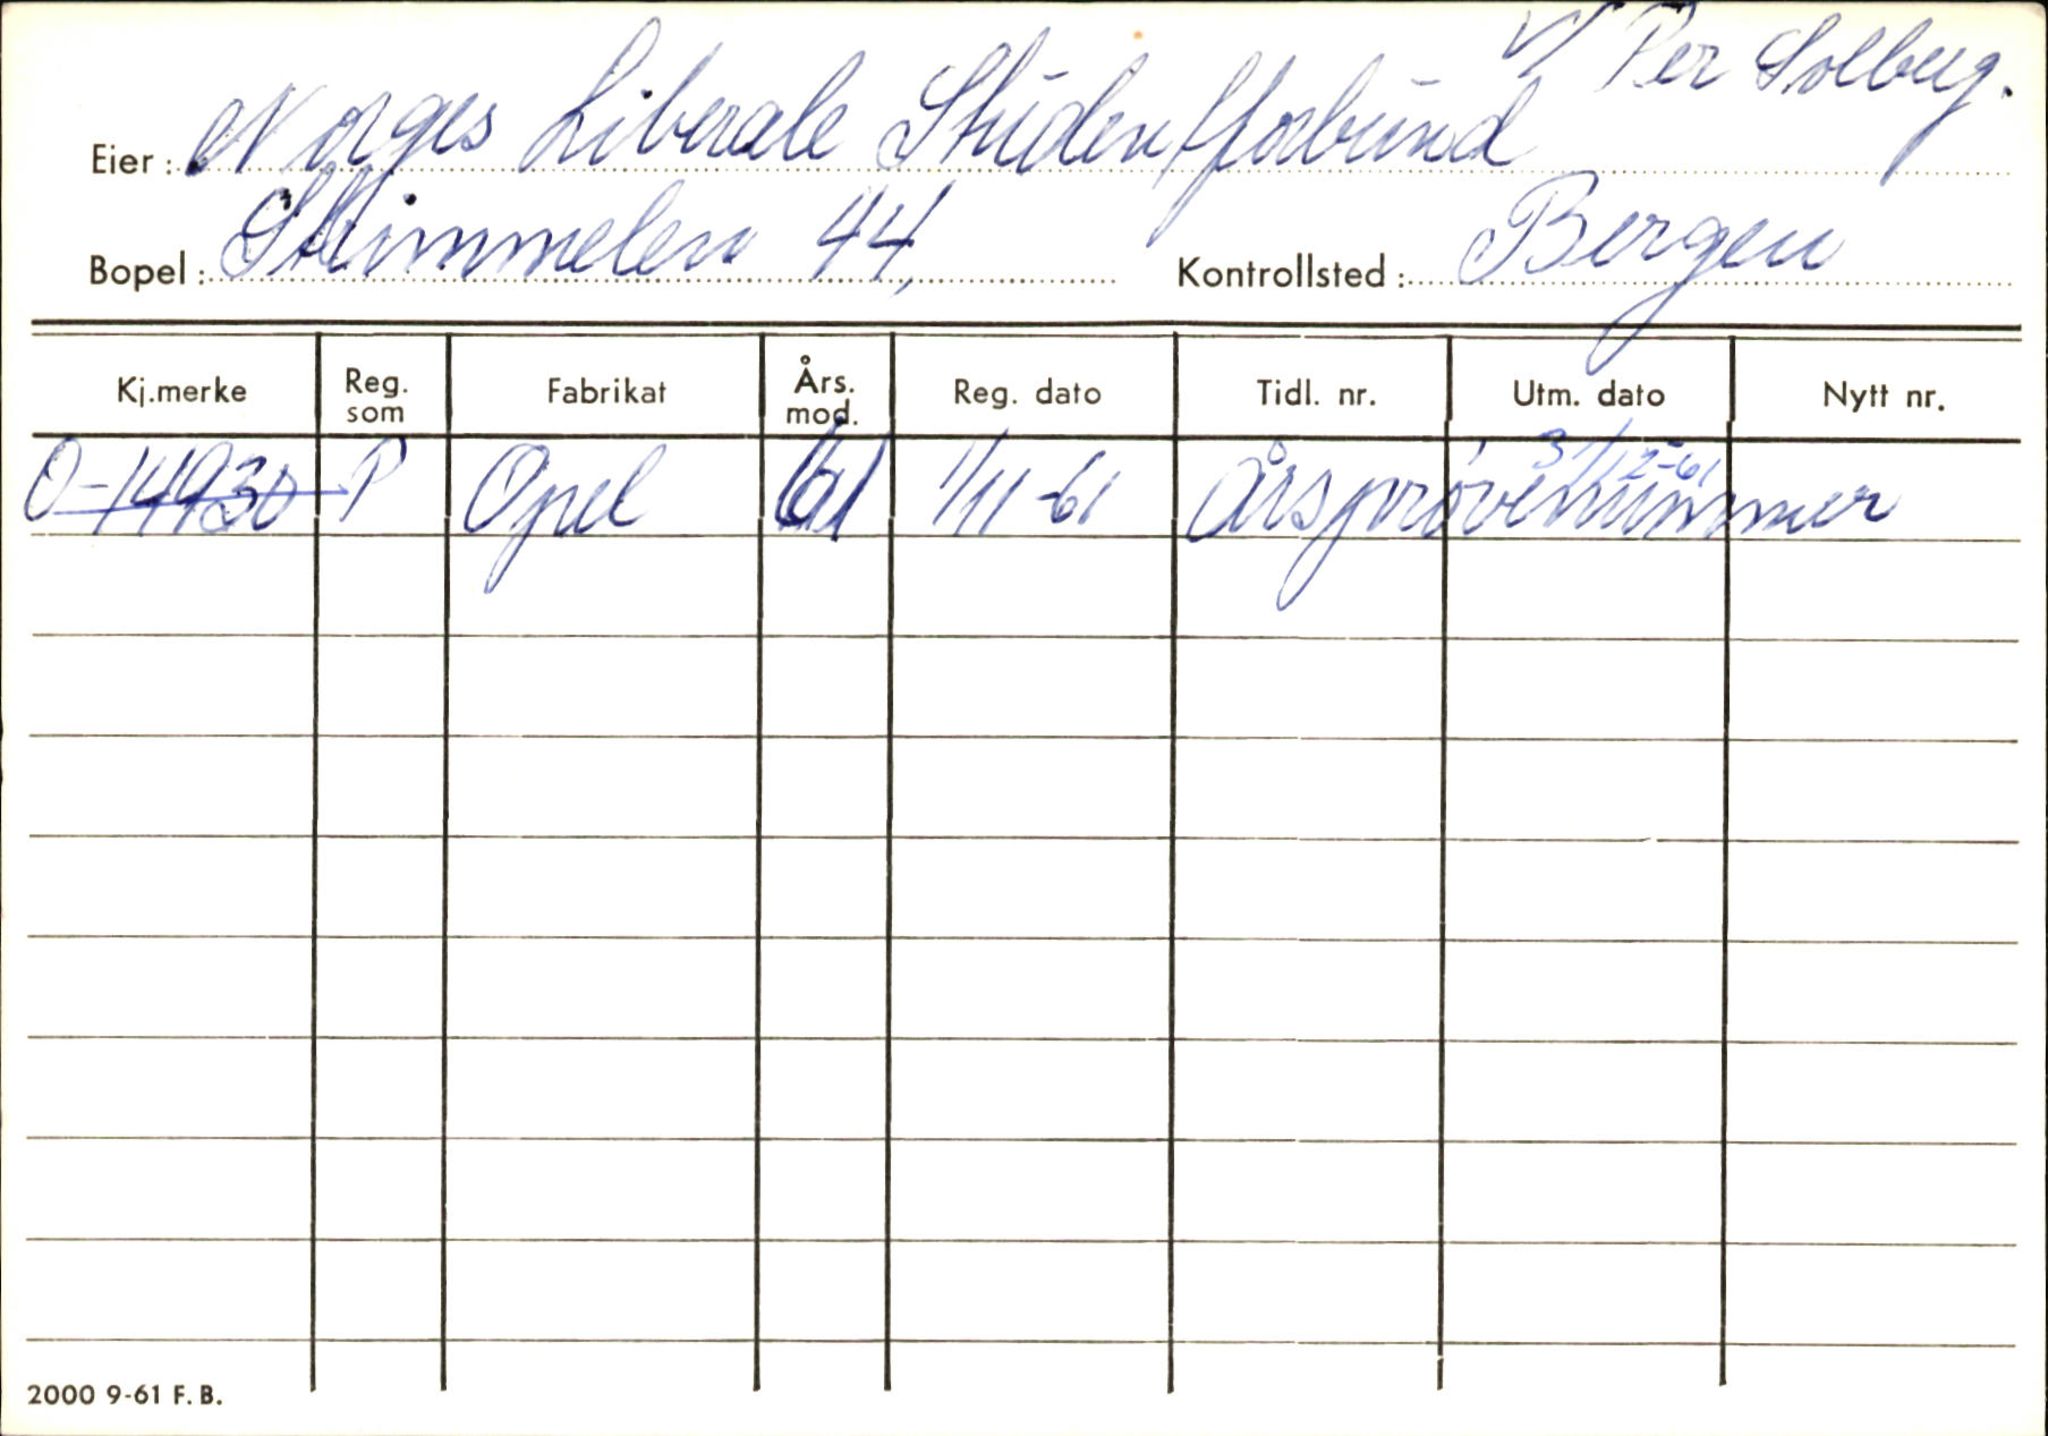 v/ Per Solberg.
Eier: Norges Liberale Studentforbund
Bopel: Stimmelen 44, Kontrollsted: Bergen
Kj.merke Reg. som Fabrikat Års. mod. Reg. dato Tidl. nr. Utm. dato Nytt nr.
31/12-61
O-14930 P Opel 61 1/11-61 Årsprøvenummer
2000 9-61 F.B.